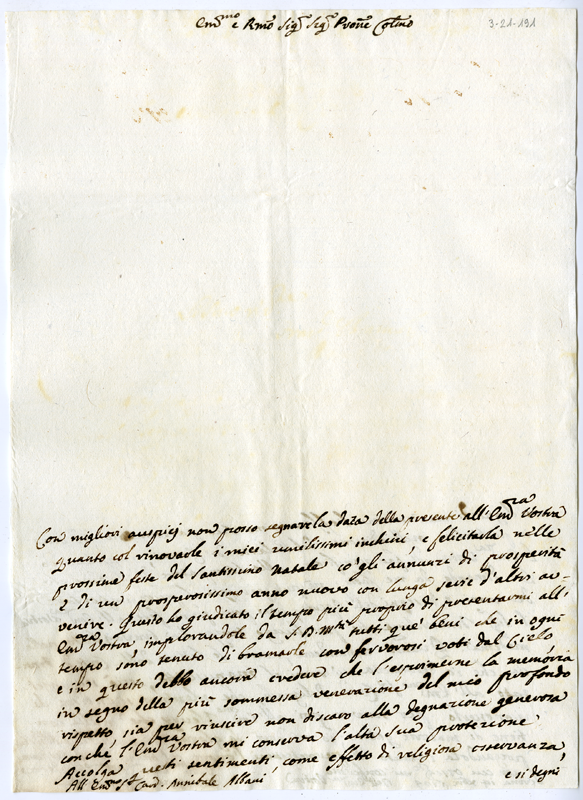 Em^mo e Rmo Sig^r Sig^r Prōne Colmo
3-21-191
Con migliori auspicj non posso segnare la data della presente all'Em^za Vostra
quanto col rinovarle i miei umilissimi inchini, e felicitarla nelle
prossime feste del Santissimo Natale co'gli annunzi di prosperità
e di un prosperosissimo anno nuovo con lunga serie d'altri av-
venire. Quindo ho giudicato il tempo più proprio di presentarmi all'
Em^za Vostra, implorandole da S. D. M^tà tutti que' beni che in ogni
tempo sono tenuto di bramarle con fervorosi voti dal Cielo,
e in questo debbo ancora credere che l'esprimerne la memoria
in segno della più sommessa venerazione del mio profondo
rispetto sia per riuscire non discaro alla degnazione generosa
con che l'Em^za Vostra mi conserva l'alta sua protezione
Accolga questi sentimenti, come effetto di religiosa osservanza,
All' Em^mo Sig^r Card. Annibale Albani
e si degni